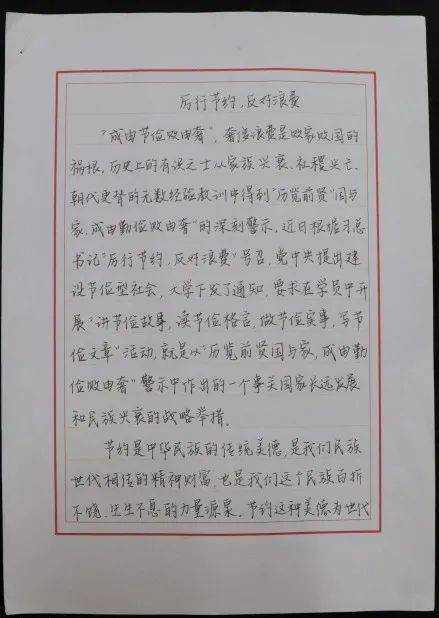 厉行节约，反对浪费
"成由节俭败由奢"，奢侈浪费是败家败国的
祸根。历史上的有识之士从家族兴衰、社稷兴亡、
朝代更替的无数经验教训中得到"历览前贤"国与
家，成由勤俭败由奢"的深刻警示。近日根据习总
书记"厉行节约，反对浪费"号召，党中央提出建
设节俭型社会，大学下发了通知，要求在学员中开
展"讲节俭故事，读节俭格言，做节俭实事，写节
俭文章"活动，就是从"历览前贤国与家，成由勤
俭败由奢"警示中作出的一个事关国家长远发展
和民族兴衰的战略举措。
节约是中华民族的传统美德，是我们民族
世代相传的精神财富，也是我们这个民族百折
不饶、生生不息的力量源泉。节约这种美德为世代